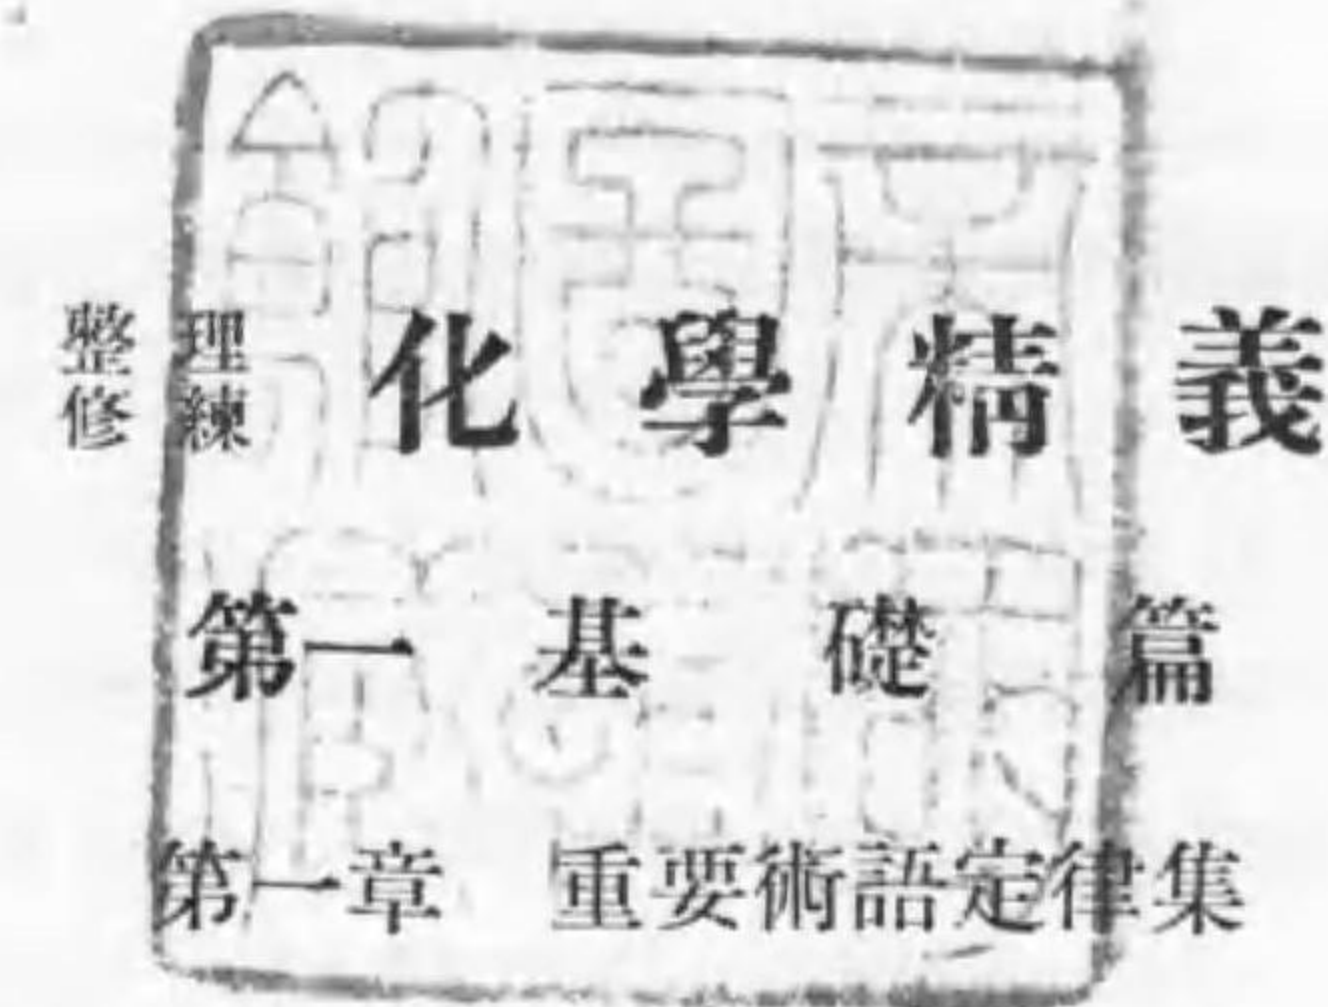 整理
修練
化學精義
第一基礎篇
第一章 重要術語定律集